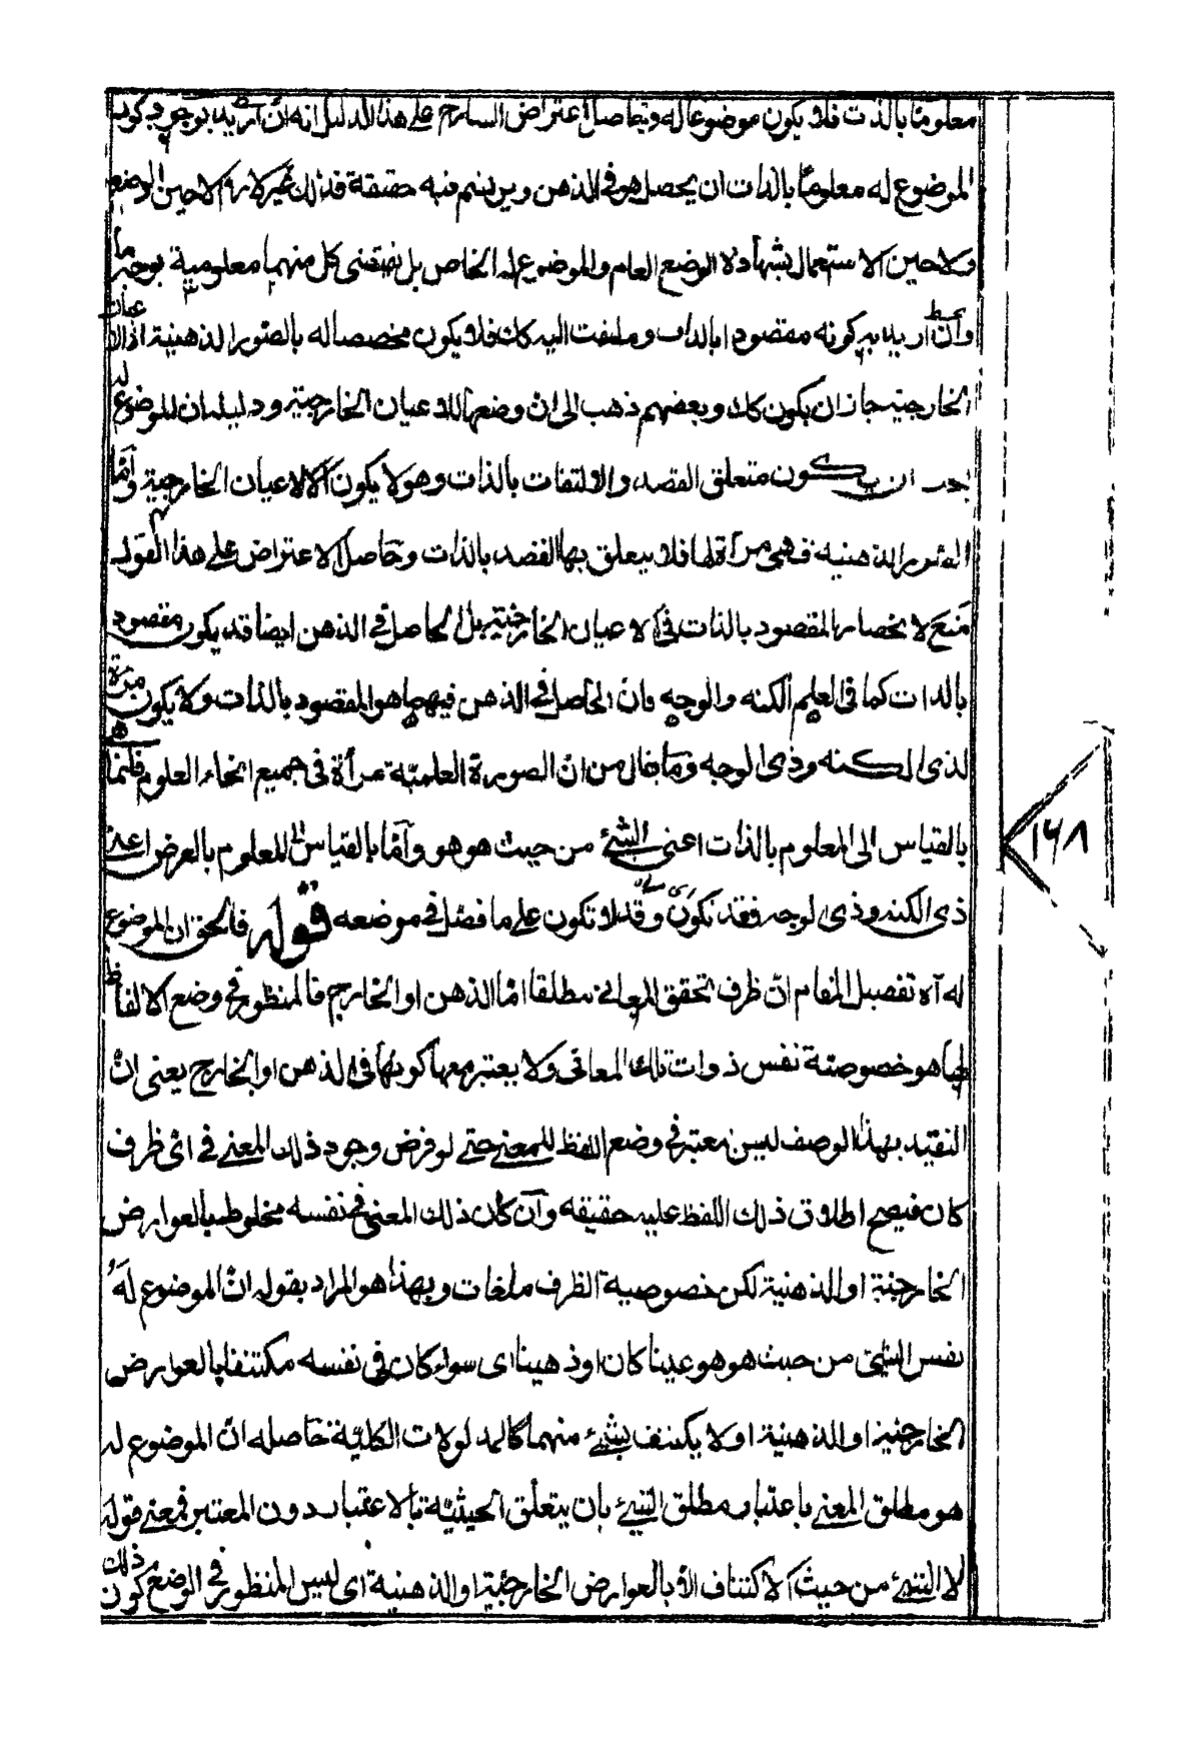 معلوما بالذات فلا يكون موضوعا له وتحاصل اعتراض الشارح على هذا الدليل انه ان اريد بوجوب كون
الموضوع له معلوما بالذات ان يحصل هو في الذهن ويرتسم فيه حقيقة فذلك غير لازم لا حين الوضع
ولا حين الاستعمال بشهادة الوضع العام والموضوع له الخاص بل يقتضى كل منهما معلومية بوجه ما
وان اريد به كونه مقصودا بالذات وملتفت اليه كك فلا يكون مخصصا له بالصور الذهنية اذ الاعيان
الخارجية جاز ان يكون كك وبعضهم ذهب الى ان وضعها للاعيان الخارجية ودليله ان الموضوع له
يجب ان يكون متعلق القصد والالتفات بالذات وهو لا يكون الا الاعيان الخارجية واما
الصور الذهنية فهى مرأة لها فلا يتعلق بها القصد بالذات وحاصل الاعتراض على هذا القول
منع لانحصار المقصود بالذات في الاعيان الخارجية بل الحاصل في الذهن ايضا قد يكون مقصودا
بالذات كما في العلم بالكنه والوجه فان الحاصل في الذهن فيهما هو المقصود بالذات ولا يكون مرأة
لذى الكنه وذى الوجه وما يقال من ان الصورة العلمية مرأة في جميع انحاء العلوم فانما هى
بالقياس الى المعلوم بالذات اعنى الشئ من حيث هو هو وأما بالقياس الى المعلوم بالعرض اعنى
ذى الكنه وذى الوجه فقد تكون مرأة وقد لا تكون على ما فصل في موضعه قوله فالحق ان الموضوع
له آه تفصيل المقام ان ظرف تحقق المعانى مطلقا اما الذهن او الخارج فالمنظور في وضع الالفاظ
لها هو خصوصية نفس ذوات تلك المعانى ولا يعتبر معها كونها في الذهن او الخارج يعنى ان
التقييد بهذا الوصف ليس معتبر في وضع اللفظ للمعنى حتى لو فرض وجود ذلك المعنى في اى ظرف
كان فيصح اطلاق ذلك اللفظ عليه حقيقه وان كان ذلك المعنى في نفسه مخلوطا بالعوارض
الخارجية او الذهنية لكن خصوصية الظرف ملغات وبهذا هو المراد بقوله ان الموضوع له
نفس الشئ من حيث هو هو عينا كان او ذهينا اى سواء كان في نفسه مكتنفا بالعوارض
الخارجية او الذهنية او لا يكتنف بشئ منهما كالمدلولات الكلية حاصله ان الموضوع له
هو مطلق المعنى باعتبار مطلق الشئ بان يتعلق الحيثية بالاعتبار دون المعتبر فمعنى قوله
لا الشئ من حيث الاكتناف الا بالعوارض الخارجية او الذهنية اى ليس المنظور في الوضع كون ذلك
١٦٨